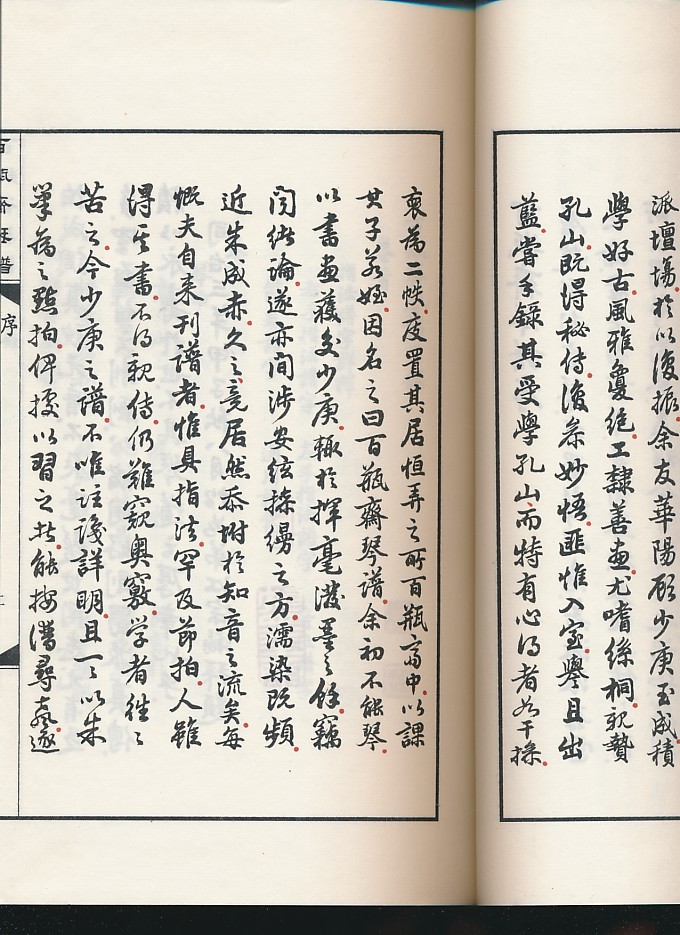 派壇場於以復振余友華陽顧少庚玉成積
學好古風雅敻絕工隸善畫尤嗜絲桐親贄
孔山既得秘傳復參妙悟匪惟入室譽且出
藍嘗手錄其受學孔山而特有心得者若干操
裒為二帙庋置其居恒弄之所百瓶齋中以課
其子若姪因名之曰百瓶齋琴譜余初不能琴
以書畫獲交少庚輒於揮毫潑墨之餘竊
聞緒論遂亦間涉安絃操縵之方濡染既頻
近朱成赤久之竟居然忝附於知音之流矣每
慨夫自來刊譜者惟具指法罕及節拍人雖
得其書不得親傳仍難窺奧竅学者往々
苦之今少庚之譜不唯註說詳明且一一以朱
筆為之點拍俾據以習之者能按譜尋聲逐
百瓶齋琴譜
序